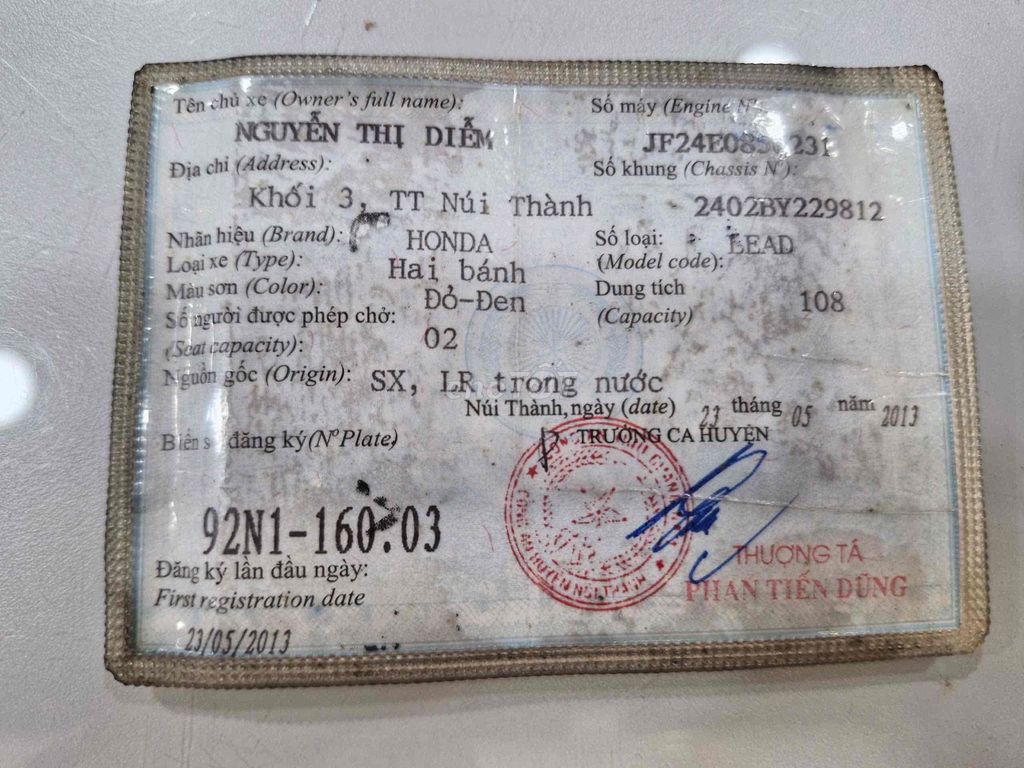 Tên chủ xe (Owner's full name):
NGUYỄN THỊ DIỄM
Địa chỉ (Address):
Khối 3, TT Núi Thành
Nhãn hiệu (Brand): HONDA
Loại xe (Type): Hai bánh
Màu sơn (Color): Đỏ-Đen
Số người được phép chở:
(Seat capacity): 02
Nguồn gốc (Origin): SX, LR trong nước
Số máy (Engine Nº
Số khung (Chassis Nº):
2402BY229812
Số loại: LEAD
(Model code):
Dung tích 108
(Capacity)
Núi Thành, ngày (date) 23 tháng 05 năm 2013
TRƯỞNG CA HUYỆN
Biển số đăng ký (Nº Plate)
92N1-160.03
Đăng ký lần đầu ngày:
First registration date
23/05/2013
THƯỢNG TÁ
PHAN TIẾN DŨNG